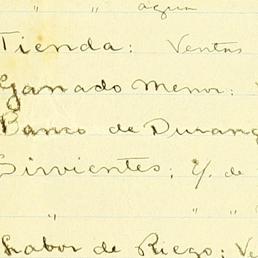 " " agua
Tienda: Ventas
Ganado Menor:
Banco de Durang
Sirvientes; y. de
" " "
Labor de Riego: Ve